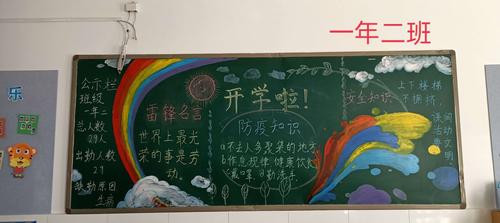 一年二班
乐
公示栏
班级
一年二
总人数
出勤人数
缺勤原因
生病
雷锋名言
世界上最光
荣的事是劳
动
开学啦！
防疫知识
a不去人多聚集的地方
b作息规律 健康饮食
c戴口罩 d勤洗手
安全知识
上下楼梯
不拥挤，
课间活动要文明